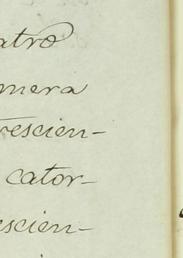 atro
mera
rescien-
cator-
escien-